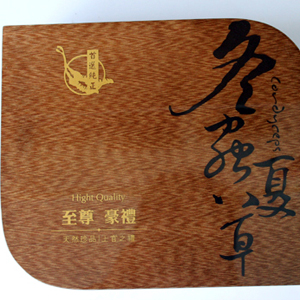 首選純正
Hight Quality
至尊 豪禮
冬蟲夏草
cordyceps